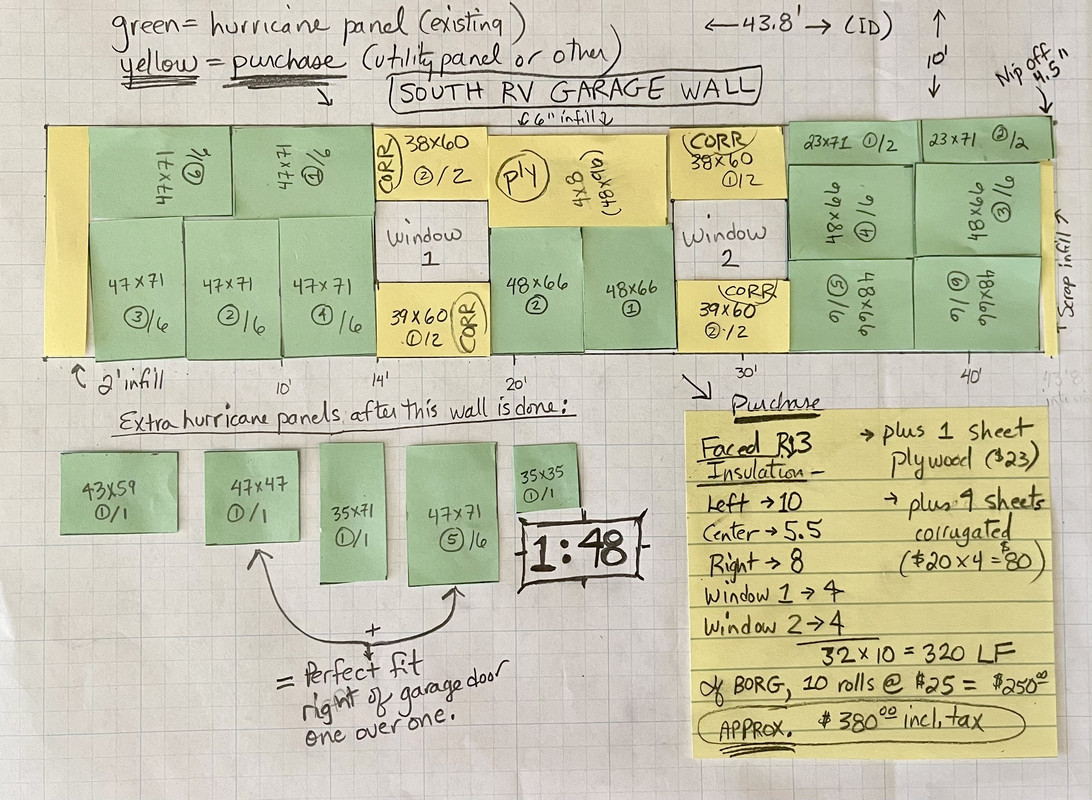 green= hurricane panel (existing)
yellow = purchase (utility panel or other)
←43.8'→ (ID)
10'
Nip off
4.5"
SOUTH RV GARAGE WALL
6" infill
47x71
⑥/6
47x71
①/6
CORR
38x60
②/2
ply
4x8
(48x96)
CORR
38x60
①/2
23x71 ①/2
23x71 ②/2
window
1
window
2
48x66
④/6
48x66
③/6
47x71
③/6
47x71
②/6
47x71
④/6
39x60
①/2
CORR
48x66
②
48x66
①
CORR
39x60
②/2
48x66
⑤/6
48x66
⑥/6
Scrap infill
2' infill
10'
14'
20'
30'
40'
Extra hurricane panels after this wall is done:
43x59
①/1
47x47
①/1
35x71
①/1
47x71
⑤/6
35x35
①/1
1:48
+
= Perfect fit
right of garage door
one over one.
Purchase
Faced R13
Insulation-
Left → 10
Center → 5.5
Right → 8
Window 1 → 4
Window 2 → 4
32 x 10 = 320 LF
@ BORG, 10 rolls @ $25 = $250⁰⁰
APPROX. $380⁰⁰ incl. tax
→ plus 1 sheet
plywood ($23)
→ plus 4 sheets
corrugated
($20 x 4 = $80)